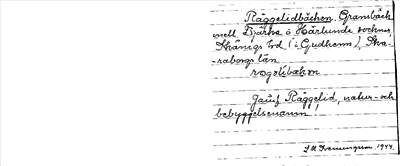 Räggelidbäcken, Gränsbäck
mell. Bjärka o Härlunda socknar,
Skånings hd (i Gudhems), Ska-
raborgs län.
Jämf. Räggelid, natur- och
bebyggelsenamn!
1944.